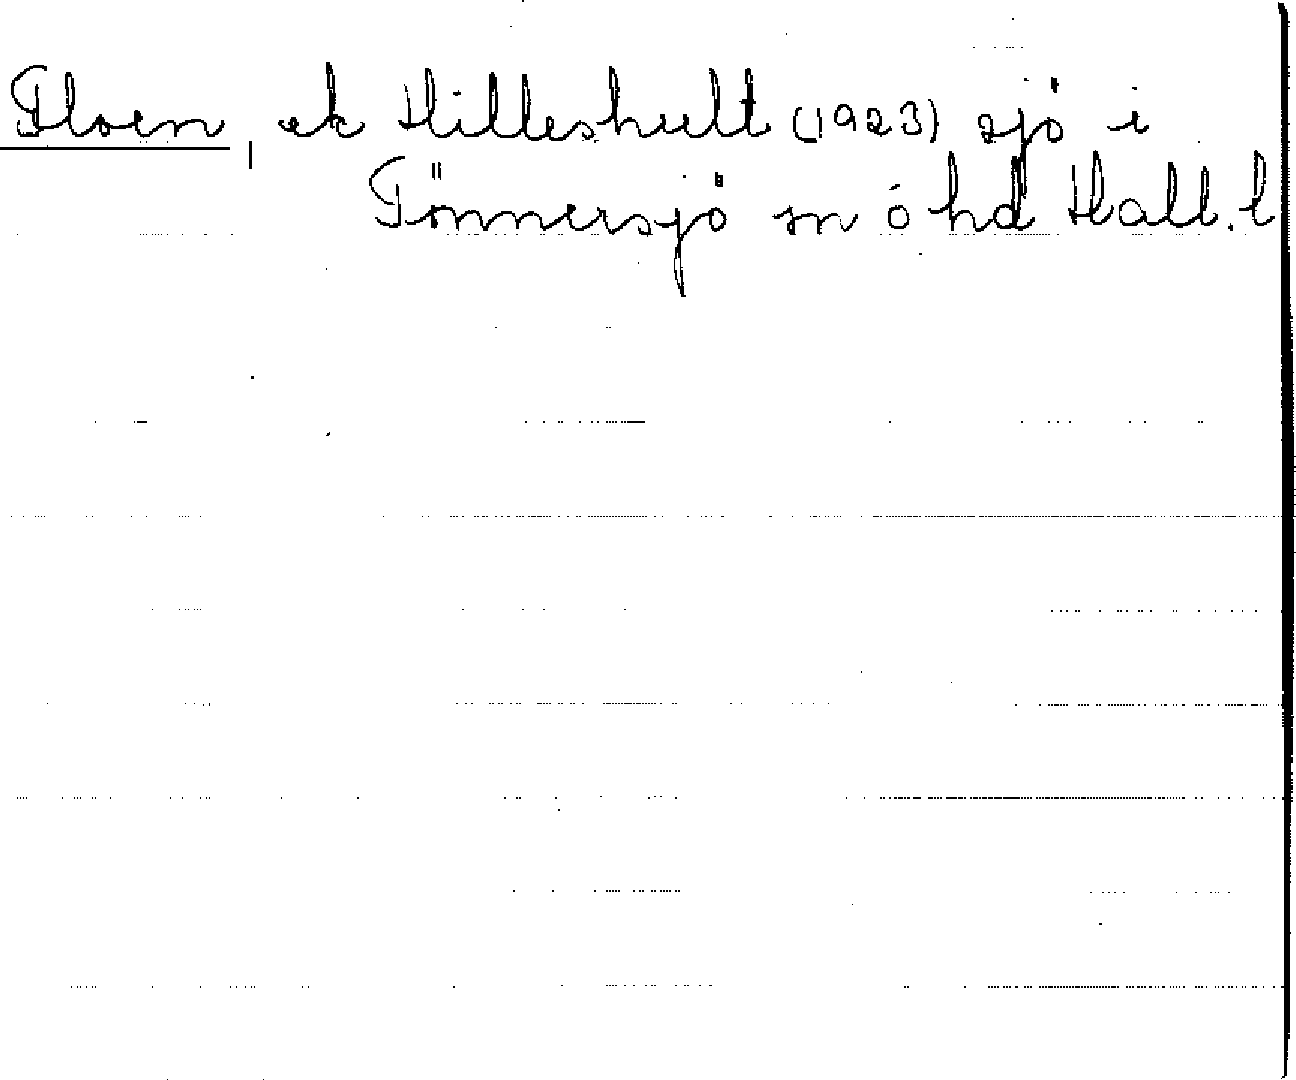 Floen, ek Hilleshult (1923) sjö i
Tönnersjö sn ö hd Hall. l